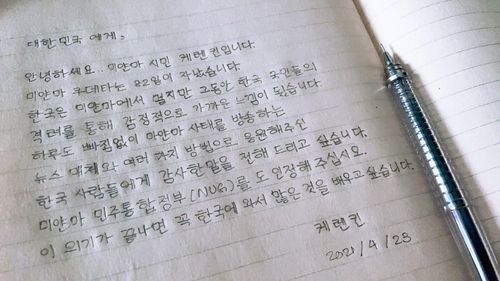 대한민국 에게,
안녕하세요.. 미얀마 시민 케렌킨입니다.
미얀마 쿠데타는 82일이 지났습니다.
한국은 미얀마에서 멀지만 그동안 한국 국민들의
격려를 통해 감정적으로 가까운 느낌이 듭니다.
하루도 빠짐없이 미얀마 사태를 방송하는
뉴스 매체와 여러 가지 방법으로 응원해주신
한국 사람들에게 감사한말을 전해 드리고 싶습니다.
미얀마 민주통합정부 (NUG)를 도 인정해 주십시오.
이 위기가 끝나면 꼭 한국에 와서 많은 것을 배우고 싶습니다.
케렌킨
2021/4/23